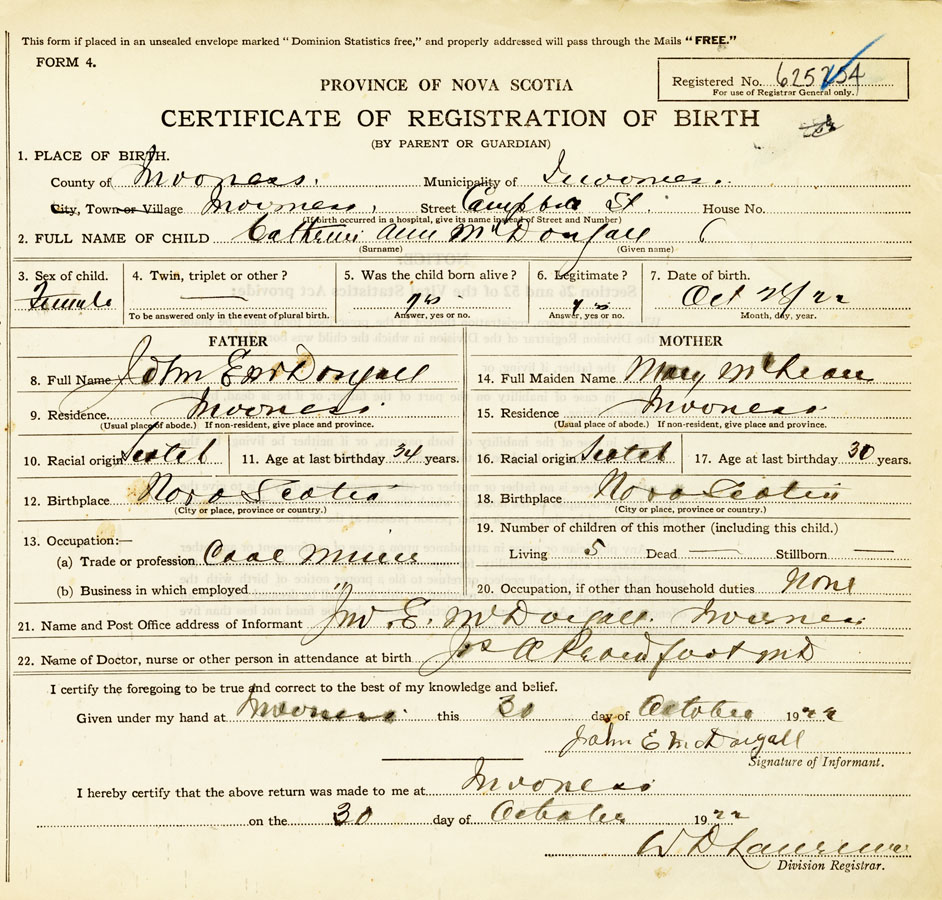 This form if placed in an unsealed envelope marked "Dominion Statistics free," and properly addressed will pass through the Mails "FREE."
FORM 4.
Registered No. 625254
For use of Registrar General only.
PROVINCE OF NOVA SCOTIA
CERTIFICATE OF REGISTRATION OF BIRTH
(BY PARENT OR GUARDIAN)
1. PLACE OF BIRTH.
County of Inverness. Municipality of Inverness.
City, Town or Village Inverness. Street Campbell St. House No.
(If birth occurred in a hospital, give its name instead of Street and Number)
2. FULL NAME OF CHILD Catherine Ann McDougall
(Surname) (Given name)
3. Sex of child. 4. Twin, triplet or other? 5. Was the child born alive? 6. Legitimate? 7. Date of birth.
Female yes yes Oct 28/22
To be answered only in the event of plural birth. Answer, yes or no. Answer, yes or no. Month, day, year.
FATHER MOTHER
8. Full Name John E McDougall 14. Full Maiden Name Mary McLean
9. Residence Inverness 15. Residence Inverness
(Usual place of abode.) If non-resident, give place and province. (Usual place of abode.) If non-resident, give place and province.
10. Racial origin Scotch 11. Age at last birthday 34 years. 16. Racial origin Scotch 17. Age at last birthday 30 years.
12. Birthplace Nova Scotia 18. Birthplace Nova Scotia
(City or place, province or country.) (City or place, province or country.)
13. Occupation:— 19. Number of children of this mother (including this child.)
(a) Trade or profession Coal Miner Living 5 Dead — Stillborn —
(b) Business in which employed " 20. Occupation, if other than household duties None
21. Name and Post Office address of Informant Jno. E. McDougall. Inverness
22. Name of Doctor, nurse or other person in attendance at birth Jos A Proudfoot MD
I certify the foregoing to be true and correct to the best of my knowledge and belief.
Given under my hand at Inverness this 30 day of October 1922
John E McDougall
Signature of Informant.
I hereby certify that the above return was made to me at Inverness
on the 30 day of October 1922
W D Lawrence
Division Registrar.